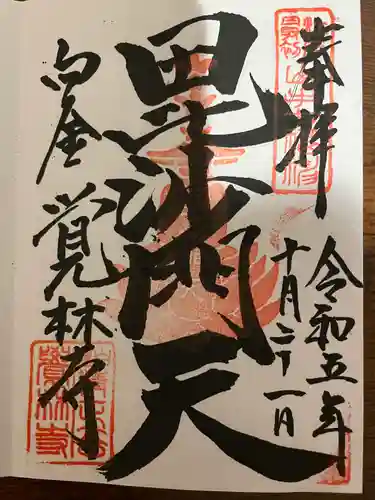 奉拝
令和五年
十月二十一日
毘沙門天
白金
覚林寺